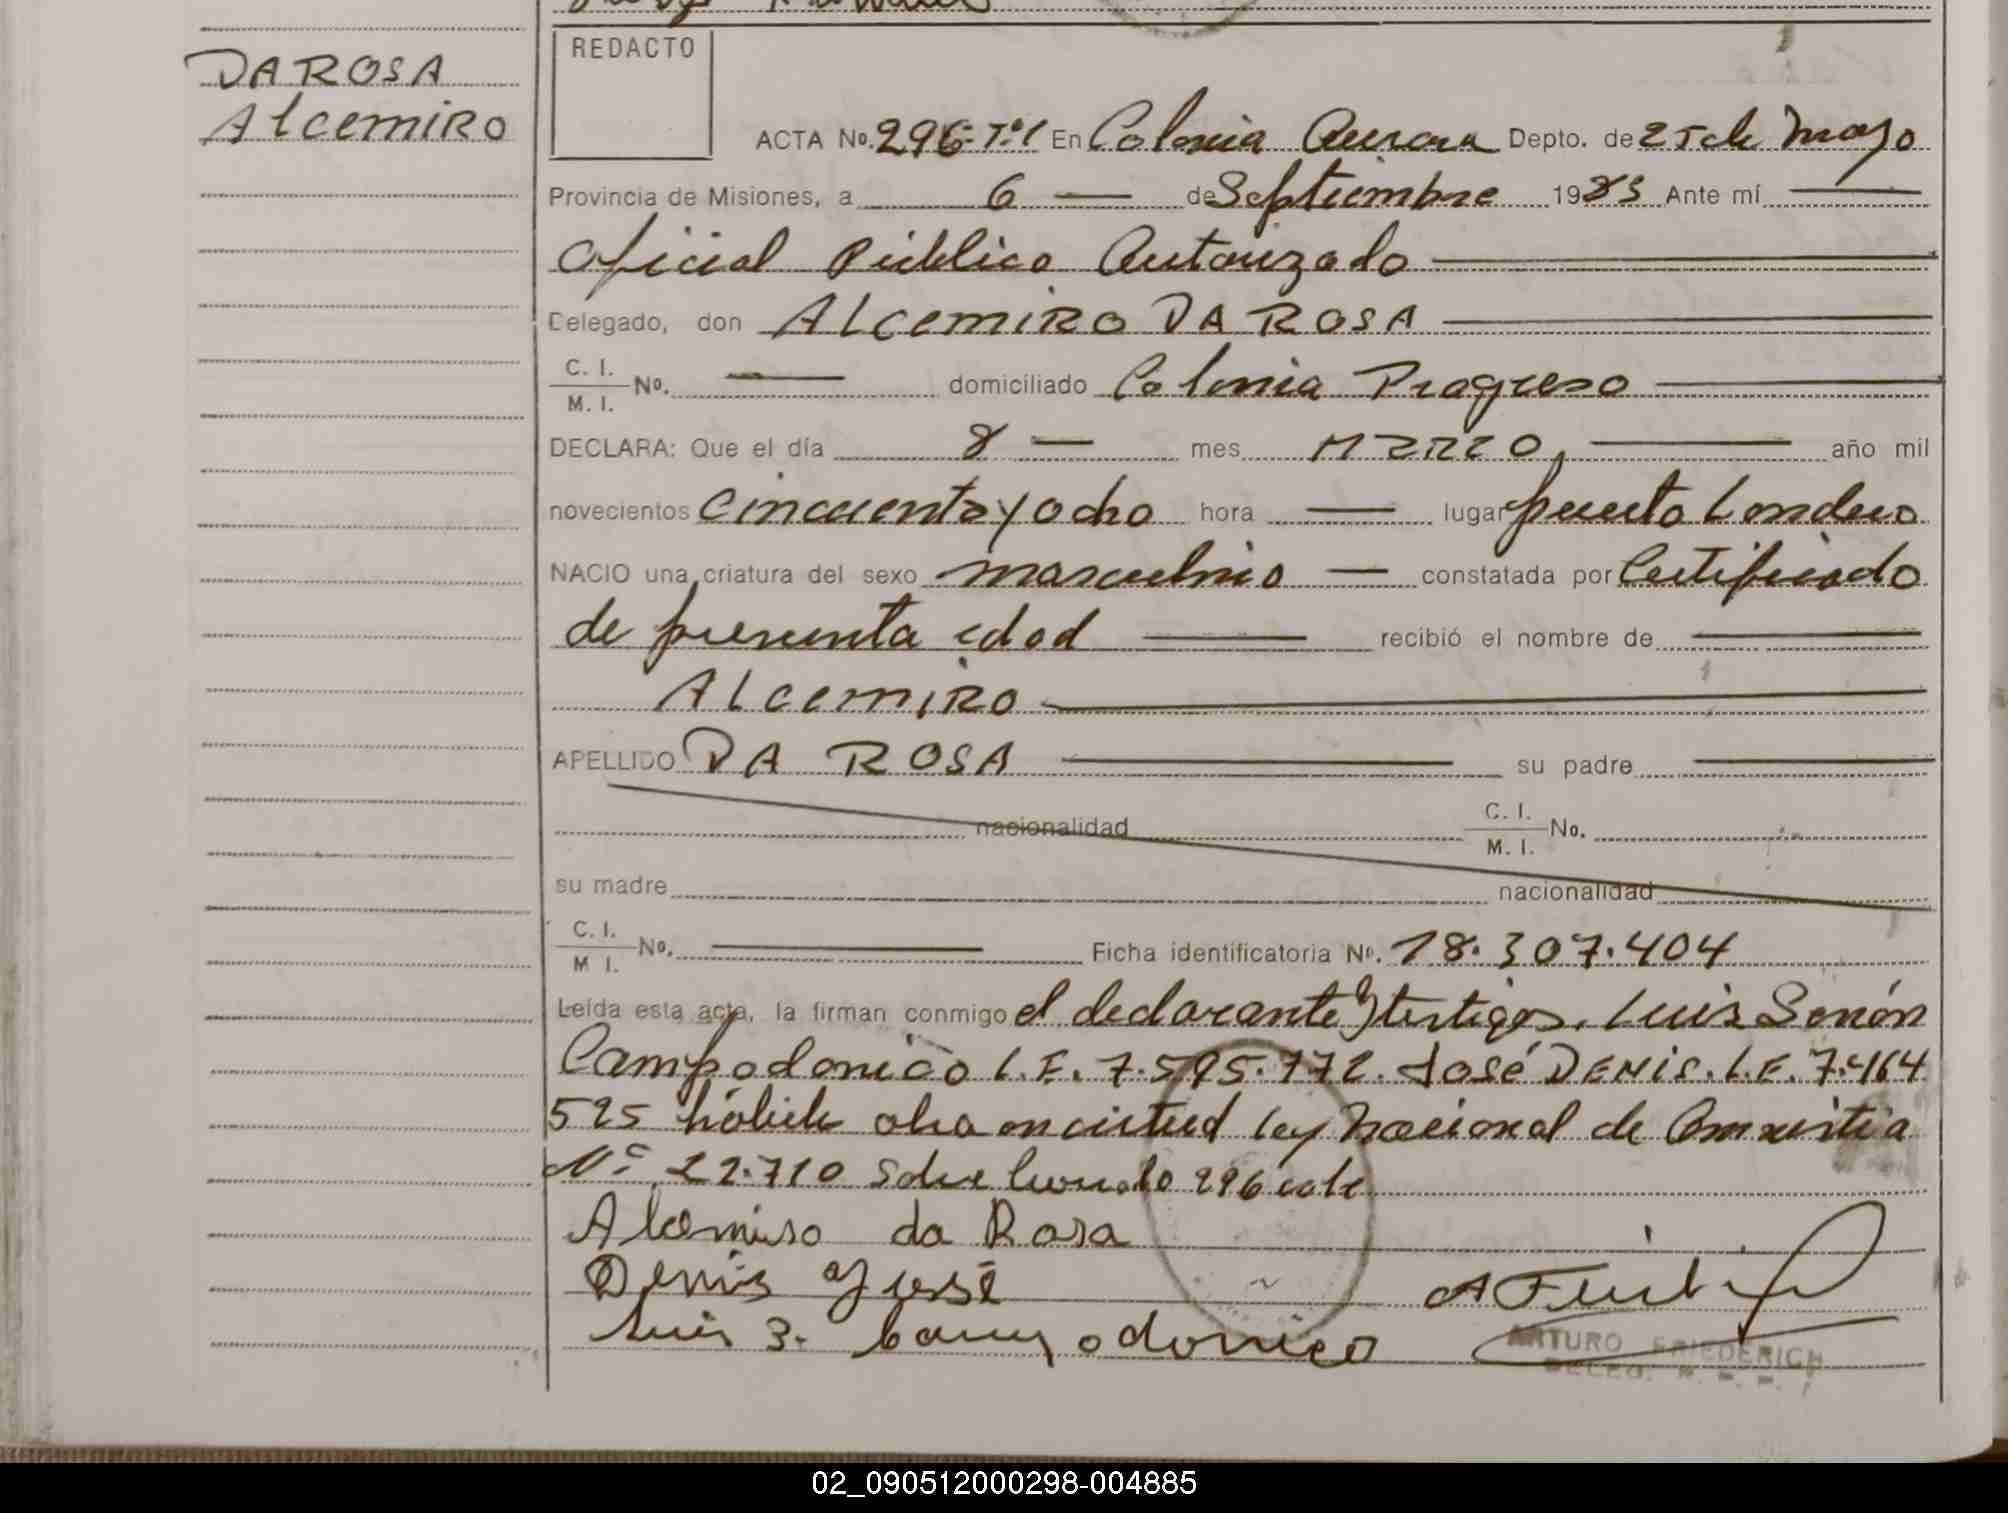 DA ROSA
Alcemiro
REDACTO
ACTA No. 296-Tº1 En Colonia Aurora Depto. de 25 de Mayo
Provincia de Misiones, a 6 — de Septiembre 1983 Ante mí —
Oficial Público Autorizado —
Delegado, don ALCEMIRO DA ROSA —
C. I.
M. I. No. — domiciliado Colonia Progreso —
DECLARA: Que el día 8 — mes MARZO — año mil
novecientos cincuenta y ocho hora — lugar puerto Londero
NACIO una criatura del sexo masculino — constatada por Certificado
de presunta edad — recibió el nombre de —
ALCEMIRO —
APELLIDO DA ROSA — su padre —
nacionalidad C. I.
M. I. No.
su madre nacionalidad
C. I.
M I. No. — Ficha identificatoria Nº. 18.307.404
Leída esta acta, la firman conmigo el declarante y testigos. Luis Senón
Campodonico L.E. 7.595.172. José DENIS. L.E. 7.464
525 hábiles ley Nacional de Amnistia
Nº 22.710 Sobre 296 vale
Alcemiro da Rosa
Denis José
Luis S. Campodonico
ARTURO FRIEDERICH
02_090512000298-004885